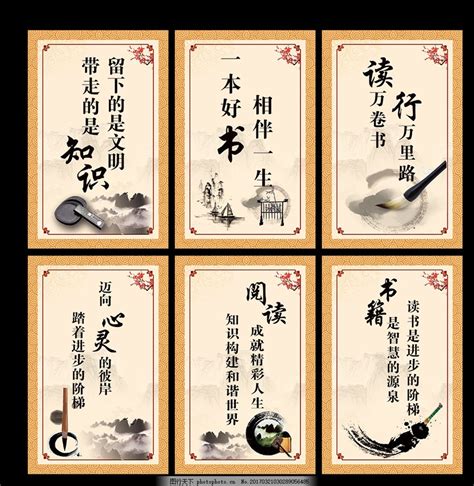 带走的是知识
留下的是文明
一本好书
相伴一生
读万卷书
行万里路
迈向心灵的彼岸
踏着进步的阶梯
阅读成就精彩人生
知识构建和谐世界
书籍是智慧的源泉
读书是进步的阶梯
图行天下 photophoto.cn No.20170321030289056486